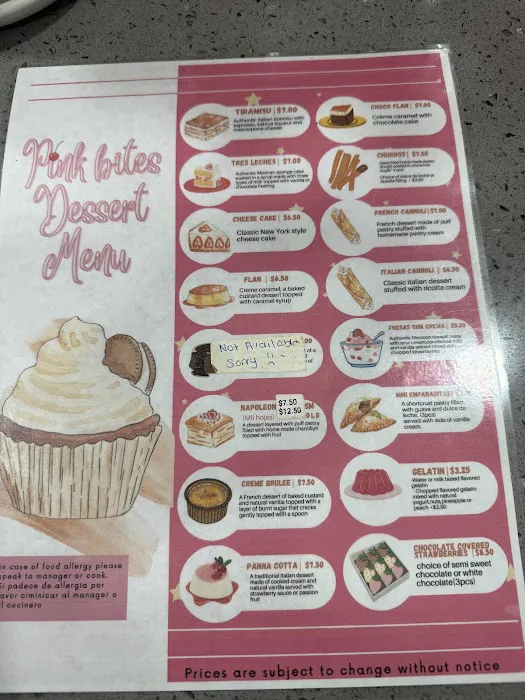 Pink bites
Dessert
Menu
in case of food allergy please
speak to manager or cook.
Si padece de alergia por
favor ciminicar al manager o
el cocinero
TIRAMISU | $7.00
Authentic Italian tiramisu with
espresso, kahlua liqueur and
mascarpone cheese
TRES LECHES | $7.00
Authentic Mexican sponge cake
soaked in a syrup made with three
types of milk topped with vanilla or
chocolate frosting
CHEESE CAKE | $6.50
Classic New York style
cheese cake
FLAN | $6.50
Creme caramel, a baked
custard dessert topped
with caramel syrup
Not Available
Sorry !!
of a
of
NAPOLEON
$7.50
$12.50
(Mil hojas)
A dessert layered with puff pastry
filled with home made chentillyn
topped with fruit
CREME BRULEE | $7.50
A French dessert of baked custard
and natural vanilla topped with a
layer of burnt sugar that cracks
gently topped with a spoon
PANNA COTTA | $7.50
A traditional Italian dessert
made of cooked cream and
natural vanilla served with
strawberry sauce or passion
fruit
CHOCO FLAN | $7.00
Créme caramel with
chocolate cake
CHURROS | $7.50
Choice of dulce de leche or
nutella filling + $2.00
FRENCH CANNOLI | $7.00
French dessert made of puff
pastry stuffed with
homemade pastry cream
ITALIAN CANNOLI | $6.50
Classic italian dessert
stuffed with ricotta cream
FRESAS CON CREMA | $5.50
Authentic Mexican dessert made
and vanilla served mixed with
chopped strawberries
MINI EMPANADITAS
A shortcrust pastry filled
with guava and dulce de
leche. (3pcs)
served with side of vanilla
cream.
GELATIN | $3.25
-Water or milk based flavored
gelatin
- Chopped flavored gelatin
mixed with natural
yogurt, nuts, pineapple or
peach +$2.50
CHOCOLATE COVERED
STRAWBERRIES | $8.50
choice of semi sweet
chocolate or white
chocolate(3pcs)
Prices are subject to change without notice